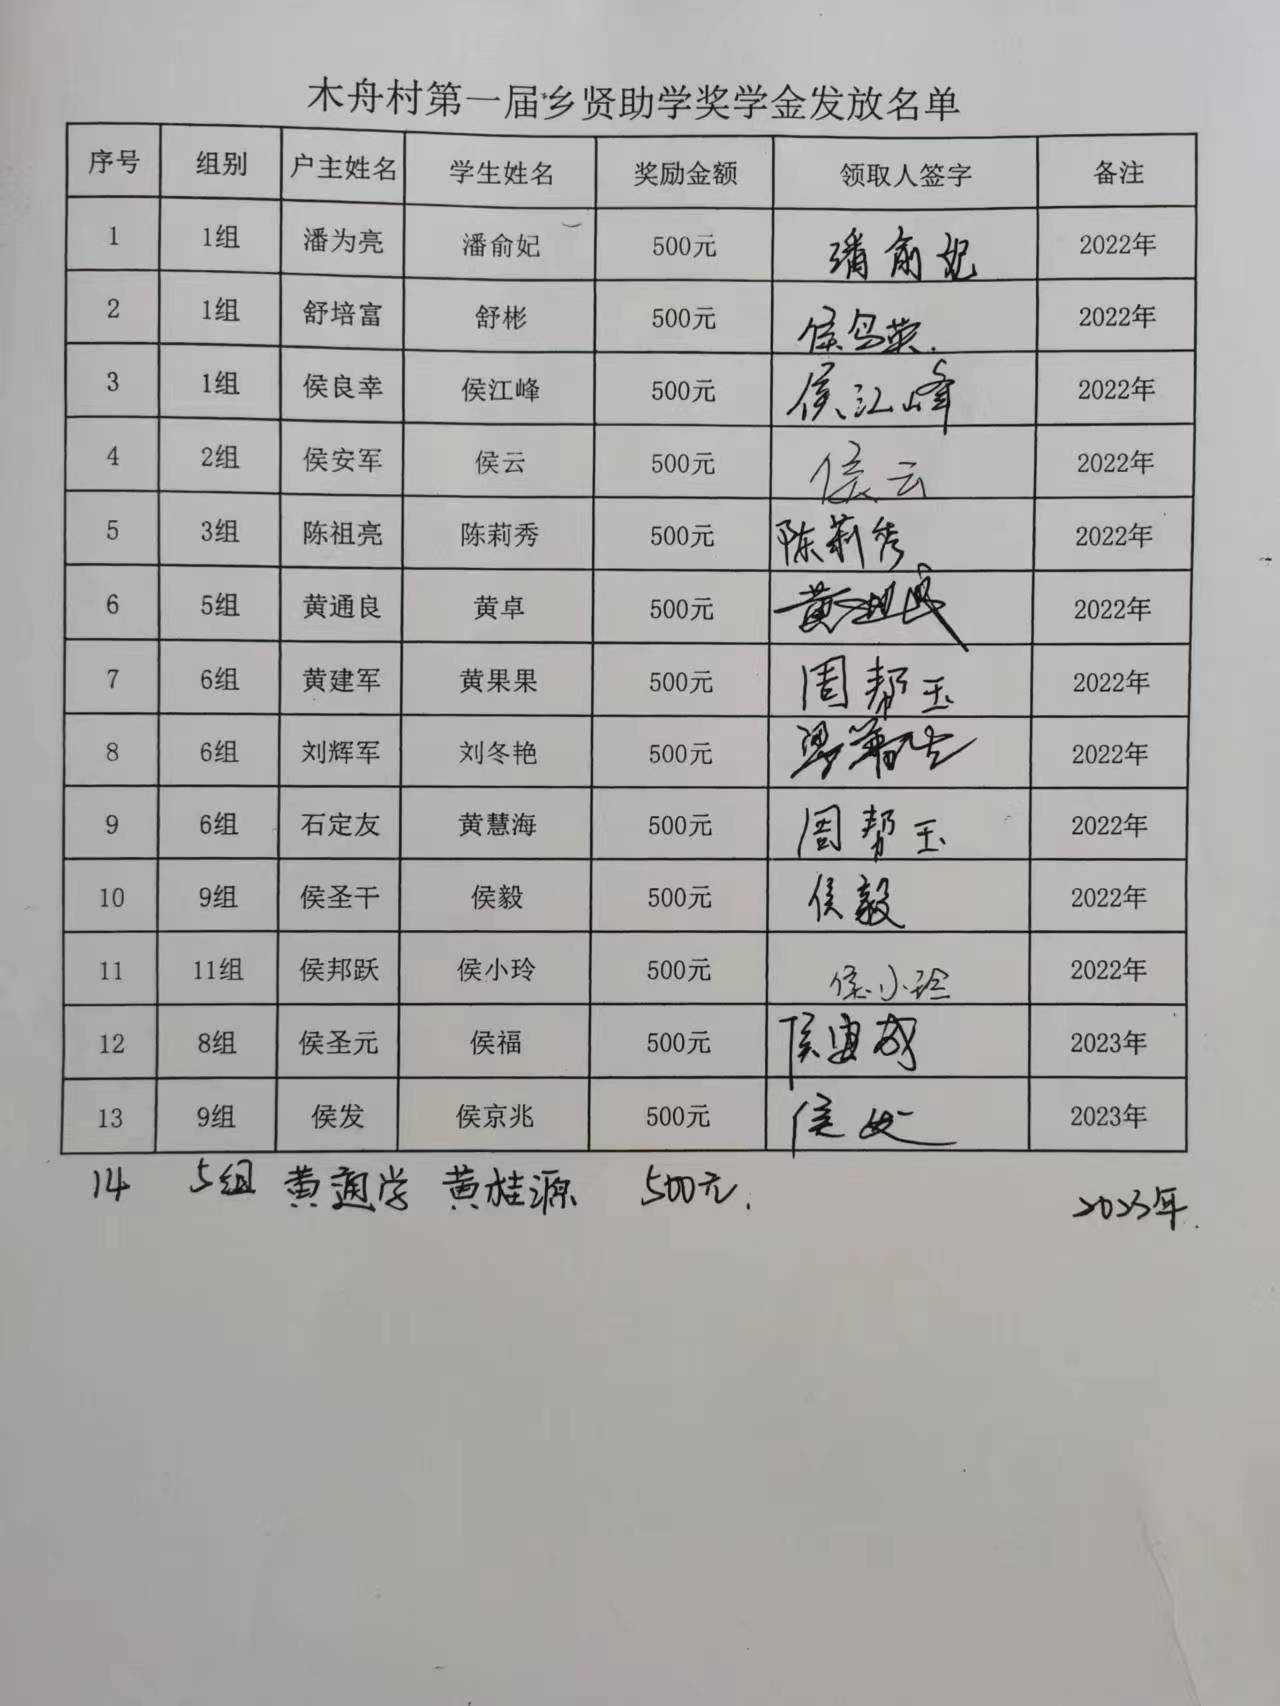 木舟村第一届乡贤助学奖学金发放名单
序号 组别 户主姓名 学生姓名 奖励金额 领取人签字 备注
1 1组 潘为亮 潘俞妃 500元 潘俞妃 2022年
2 1组 舒培富 舒彬 500元 2022年
3 1组 侯良幸 侯江峰 500元 侯江峰 2022年
4 2组 侯安军 侯云 500元 侯云 2022年
5 3组 陈祖亮 陈莉秀 500元 陈莉秀 2022年
6 5组 黄通良 黄卓 500元 2022年
7 6组 黄建军 黄果果 500元 周帮玉 2022年
8 6组 刘辉军 刘冬艳 500元 2022年
9 6组 石定友 黄慧海 500元 周帮玉 2022年
10 9组 侯圣干 侯毅 500元 侯毅 2022年
11 11组 侯邦跃 侯小玲 500元 侯小玲 2022年
12 8组 侯圣元 侯福 500元 2023年
13 9组 侯发 侯京兆 500元 2023年
14 5组 黄通学 黄桂源 500元. 2023年.